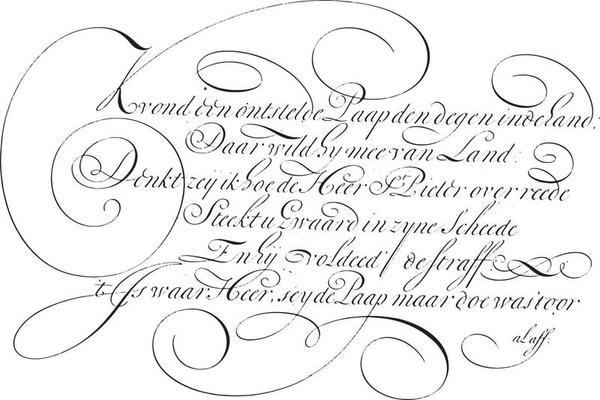 K vond een ontstelde Paap den degen inde hand,
Daar wild hy mee van Land:
Denkt zey ik hoe de Heer St. Pieter over reede
Steekt u Zwaard in zyne Scheede
En hij voldeed' de straff:
't Is waar Heer, sey de Paap maar doe was t oor
al aff.